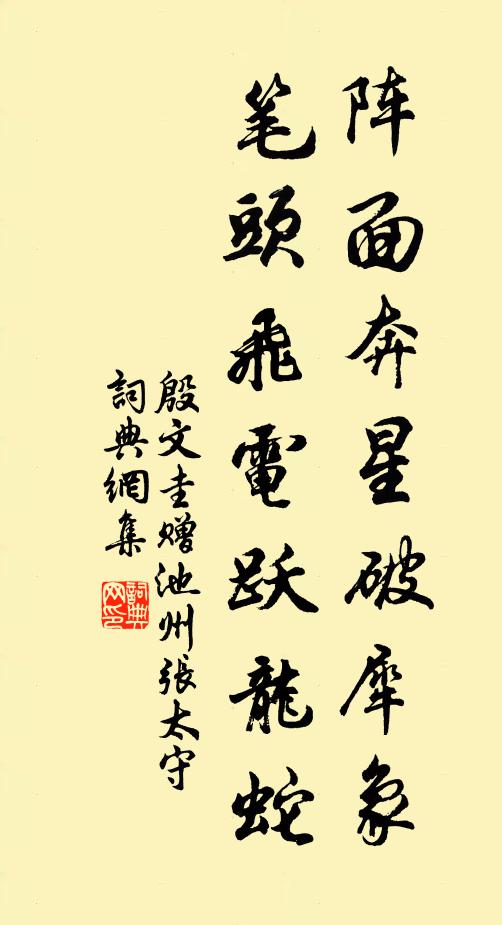 阵面奔星破犀象
笔頭飛電跃龍蛇
殷文圭赠池州張太守
詞典網集
詞典网印